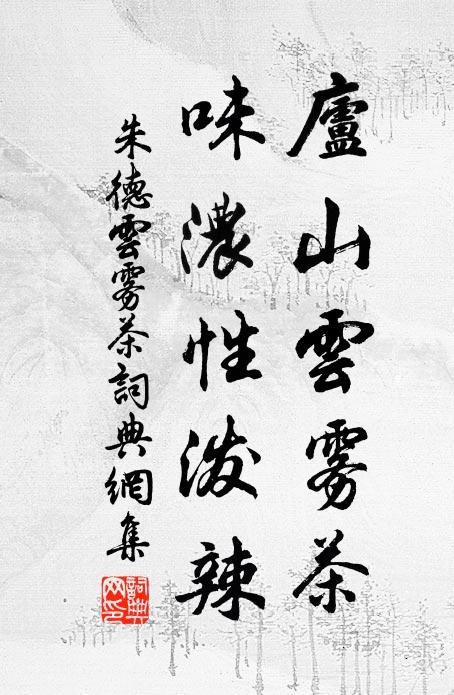 廬山雲霧茶
味濃性潑辣
朱德雲霧茶詞典網集
詞典網印